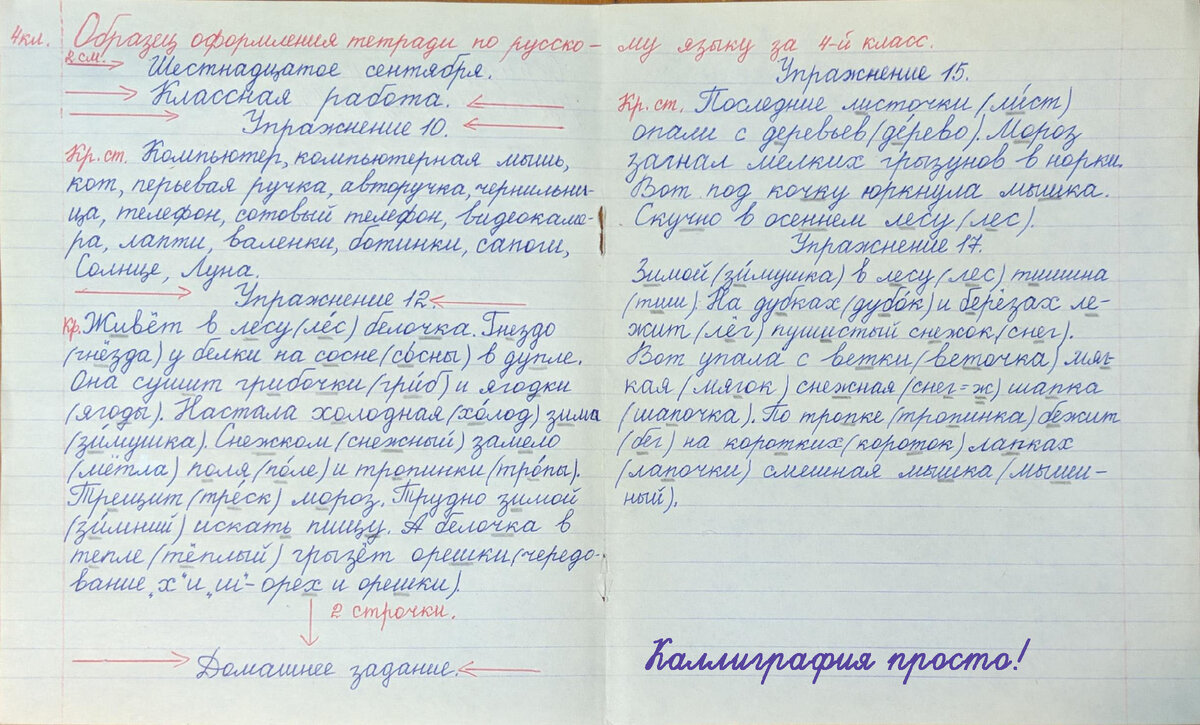 4кл. Образец оформления тетради по русско-
2 см. Шестнадцатое сентября.
Классная работа.
Упражнение 10.
Кр. ст. Компьютер, компьютерная мышь,
кот, перьевая ручка, авторучка, чернильни-
ца, телефон, сотовый телефон, видеокаме-
ра, лапти, валенки, ботинки, сапоги,
Солнце, Луна.
Упражнение 12.
Кр. Живёт в лесу (ле́с) белочка. Гнездо
(гнёзда) у белки на сосне (со́сны) в дупле.
Она сушит грибочки (гри́б) и ягодки
(я́годы). Настала холодная (хо́лод) зима
(зи́мушка). Снежком (снежный) замело
(мётла) поля (по́ле) и тропинки (тро́пы).
Трещит (тре́ск) мороз. Трудно зимой
(зи́мний) искать пищу. А белочка в
тепле (тёплый) грызёт орешки (чередо-
вание „х" и „ш" - орех и орешки).
2 строчки.
Домашнее задание.
му языку за 4-й класс.
Упражнение 15.
Кр. ст. Последние листочки (ли́ст)
опали с деревьев (де́рево). Мороз
загнал мелких грызунов в норки.
Вот под кочку юркнула мышка.
Скучно в осеннем лесу (лес).
Упражнение 17.
Зимой (зи́мушка) в лесу (лес) тишина
(тиши). На дубках (дубо́к) и берёзах ле-
жит (лёг) пушистый снежок (снег).
Вот упала с ветки (веточка) мяг-
кая (мягок) снежная (снег=ж) шапка
(шапочка). По тропке (тропинка) бежит
(бег) на коротких (короток) лапках
(лапочки) смешная мышка (мыши-
ный).
Каллиграфия просто!